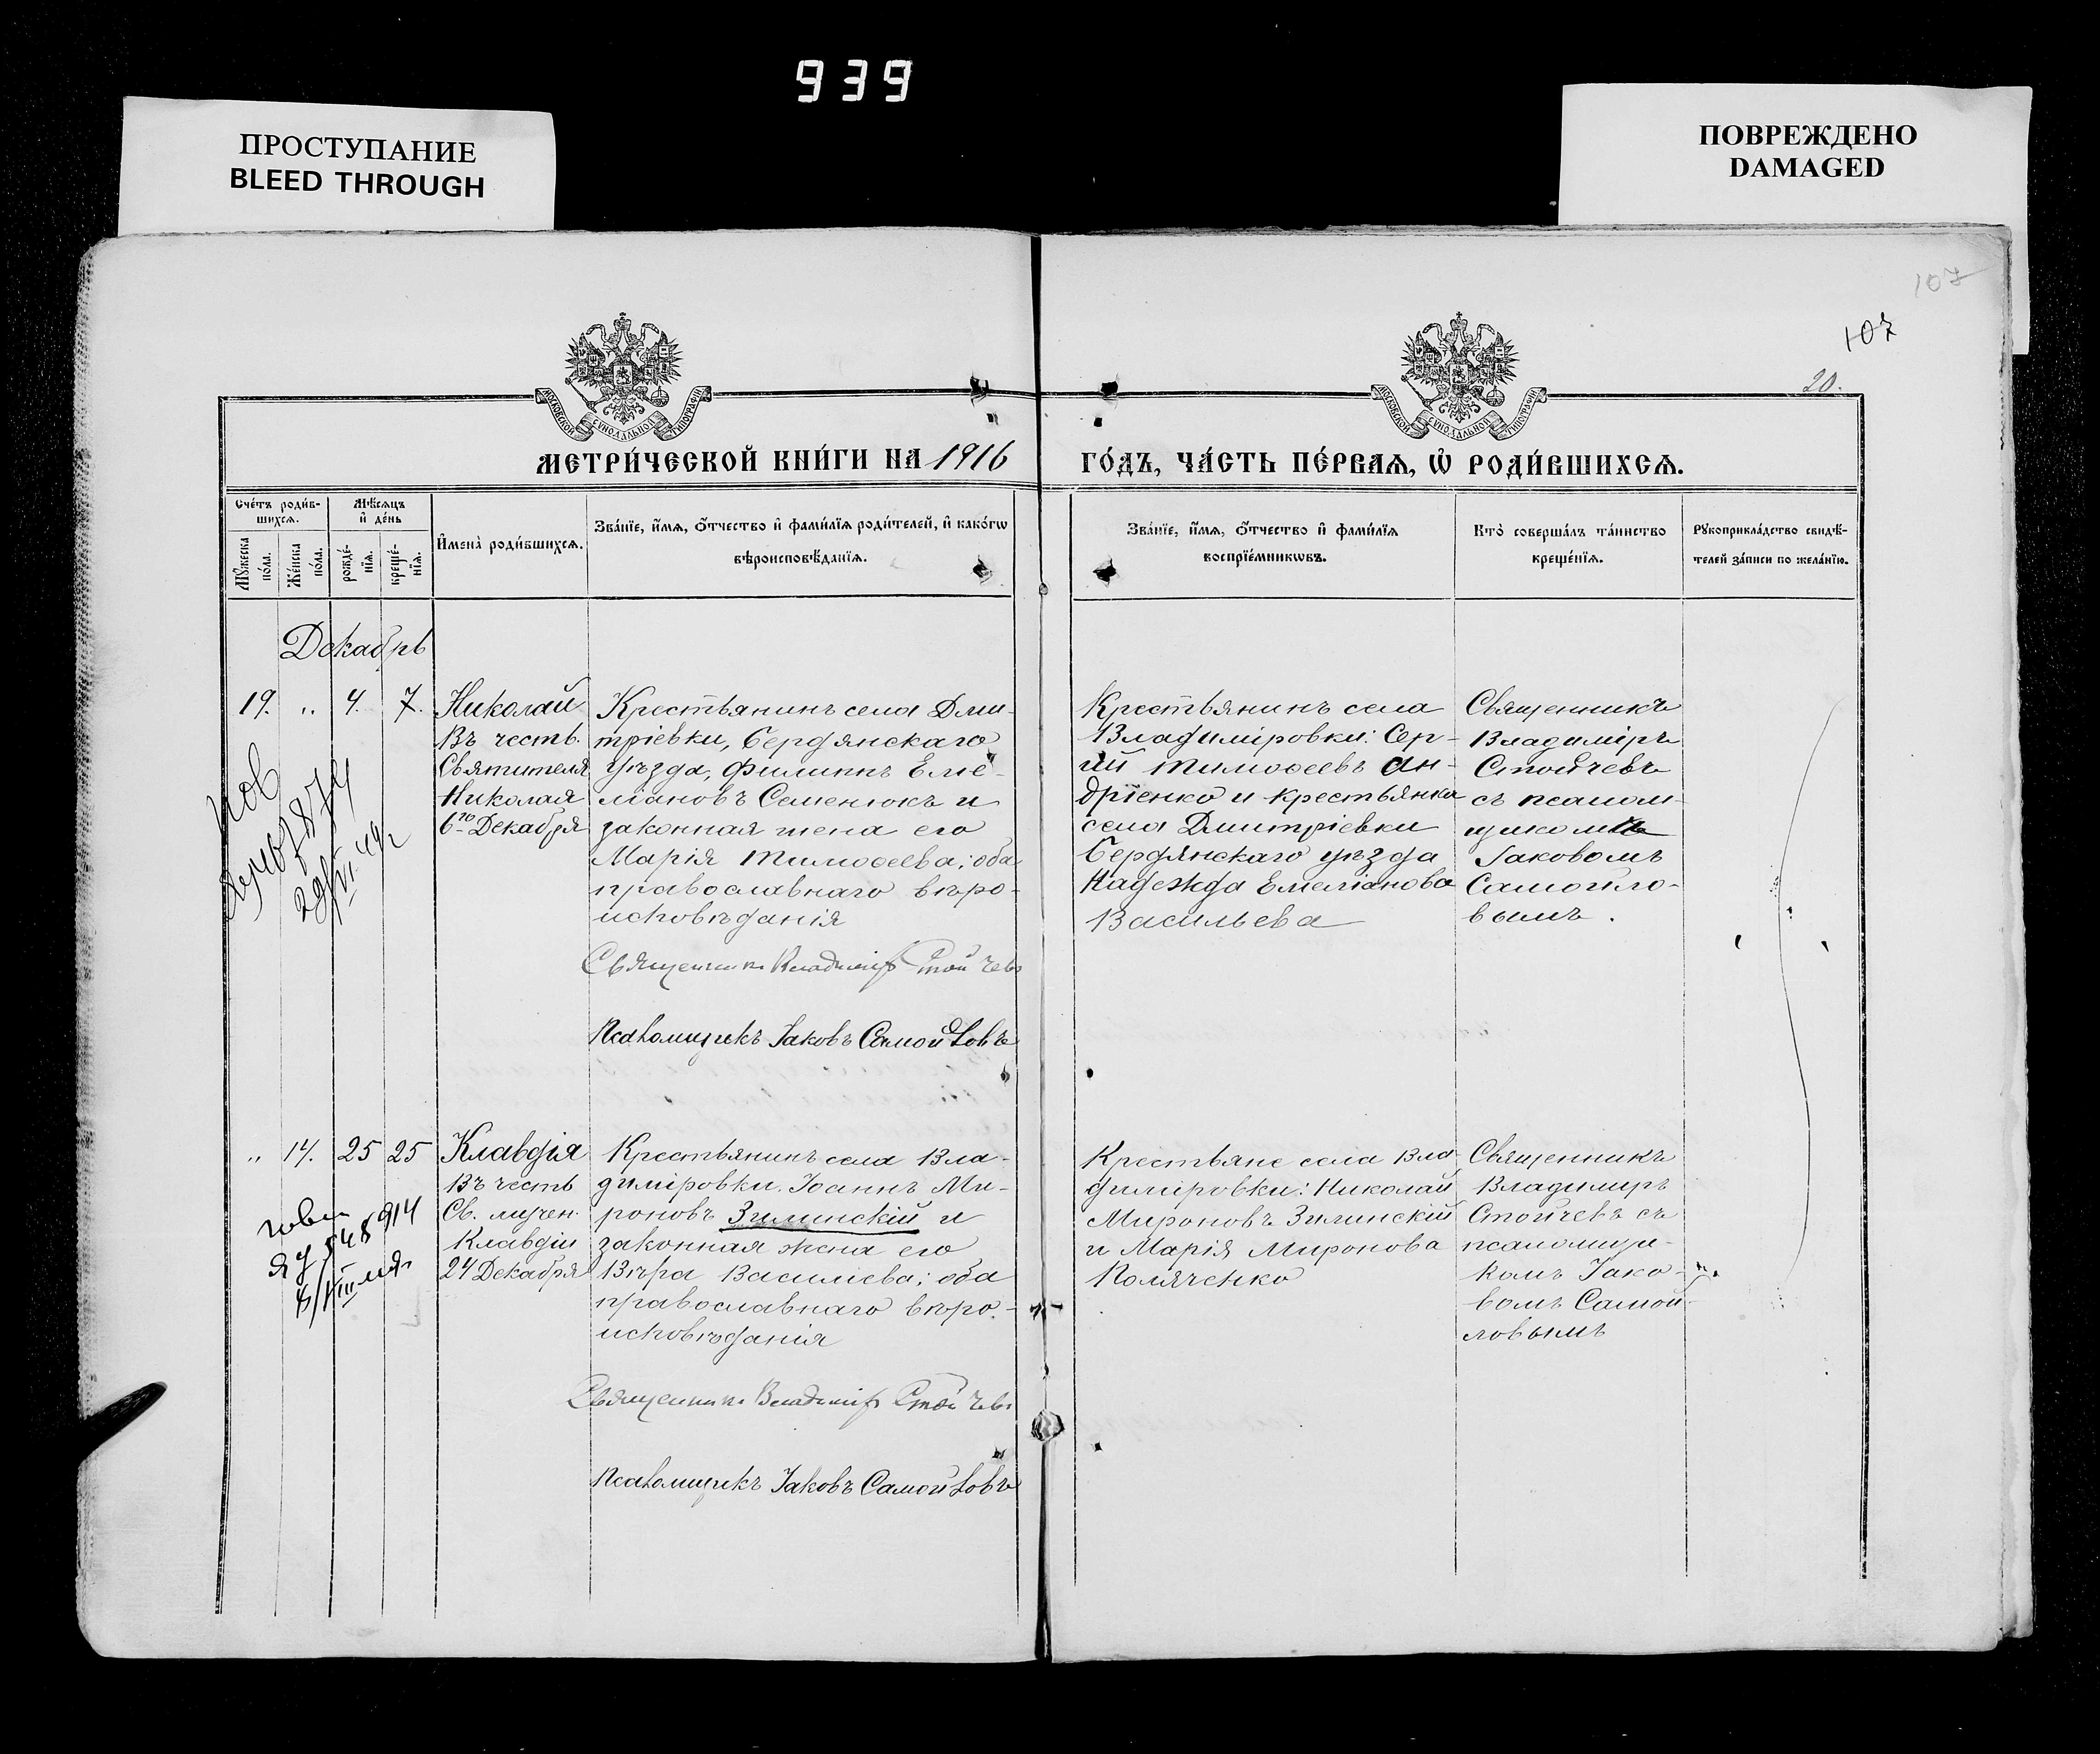 939
ПРОСТУПАНИЕ
BLEED THROUGH
ПОВРЕЖДЕНО
DAMAGED
107
107
20.
МОСКОВСКОЙ СѴНОДАЛЬНОЙ ТИПОГРАФІИ
МОСКОВСКОЙ СѴНОДАЛЬНОЙ ТИПОГРАФІИ
МЕТРИ́ЧЕСКОЙ КНИ́ГИ НА 1916
ГО́ДЪ, ЧА́СТЬ ПЕ́РВАѦ, Ѡ РОДИ́ВШИХСѦ.
Сче́тъ роди́в-
шихсѧ.
Мѣ́сѧцъ
и де́нь
Му́жеска
по́ла.
Же́нска
по́ла.
рожде́-
нїѧ.
креще́-
нїѧ.
Имена̀ роди́вшихсѧ.
Зва́нїе, и́мѧ, о́тчество и фами́лїѧ роди́телей, и како́гѡ
вѣроисповѣ́данїѧ.
Зва́нїе, и́мѧ, о́тчество и фами́лїѧ
воспрїе́мникѡвъ.
Кто̀ соверша́лъ та́инство
креще́нїѧ.
Рукоприкла́дство свидѣ́-
телей за́писи по жела́нїю.
Декабрь
19. „ 4. 7.
Николай
Въ честь
Святителя
Николая
6го Декабря
Крестьянинъ села Дми-
тріевки, Бердянскаго
уѣзда, Филиппъ Еме-
ліановъ Семенюкъ и
законная жена его
Марія Тимоѳеева; оба
православнаго вѣро-
исповѣданія
Священникъ Владиміръ Стойчевъ
Псаломщикъ Іаковъ Самойловъ
Крестьянинъ села
Владиміровки: Сер-
гій Тимоѳеевъ Ан-
дріенко и крестьянка
села Дмитріевки
Бердянскаго уѣзда
Надежда Емеліанова
Васильева
Священникъ
Владиміръ
Стойчевъ
съ псалом-
щикомъ
Іаковомъ
Самойло-
вымъ.
„ 14. 25 25
Клавдія
Въ честь
Св. мучен.
Клавдіи
24 Декабря
Крестьянинъ села Вла-
диміровки Іоаннъ Ми-
роновъ Зилинскій и
законная жена его
Вѣра Василіева; оба
православнаго вѣро-
исповѣданія
Священникъ Владиміръ Стойчевъ
Псаломщикъ Іаковъ Самойловъ
Крестьяне села Вла-
диміровки: Николай
Мироновъ Зилинскій
и Марія Миронова
Поляченко
Священникъ
Владиміръ
Стойчевъ съ
псаломщи-
комъ Іако-
вомъ Самой-
ловымъ